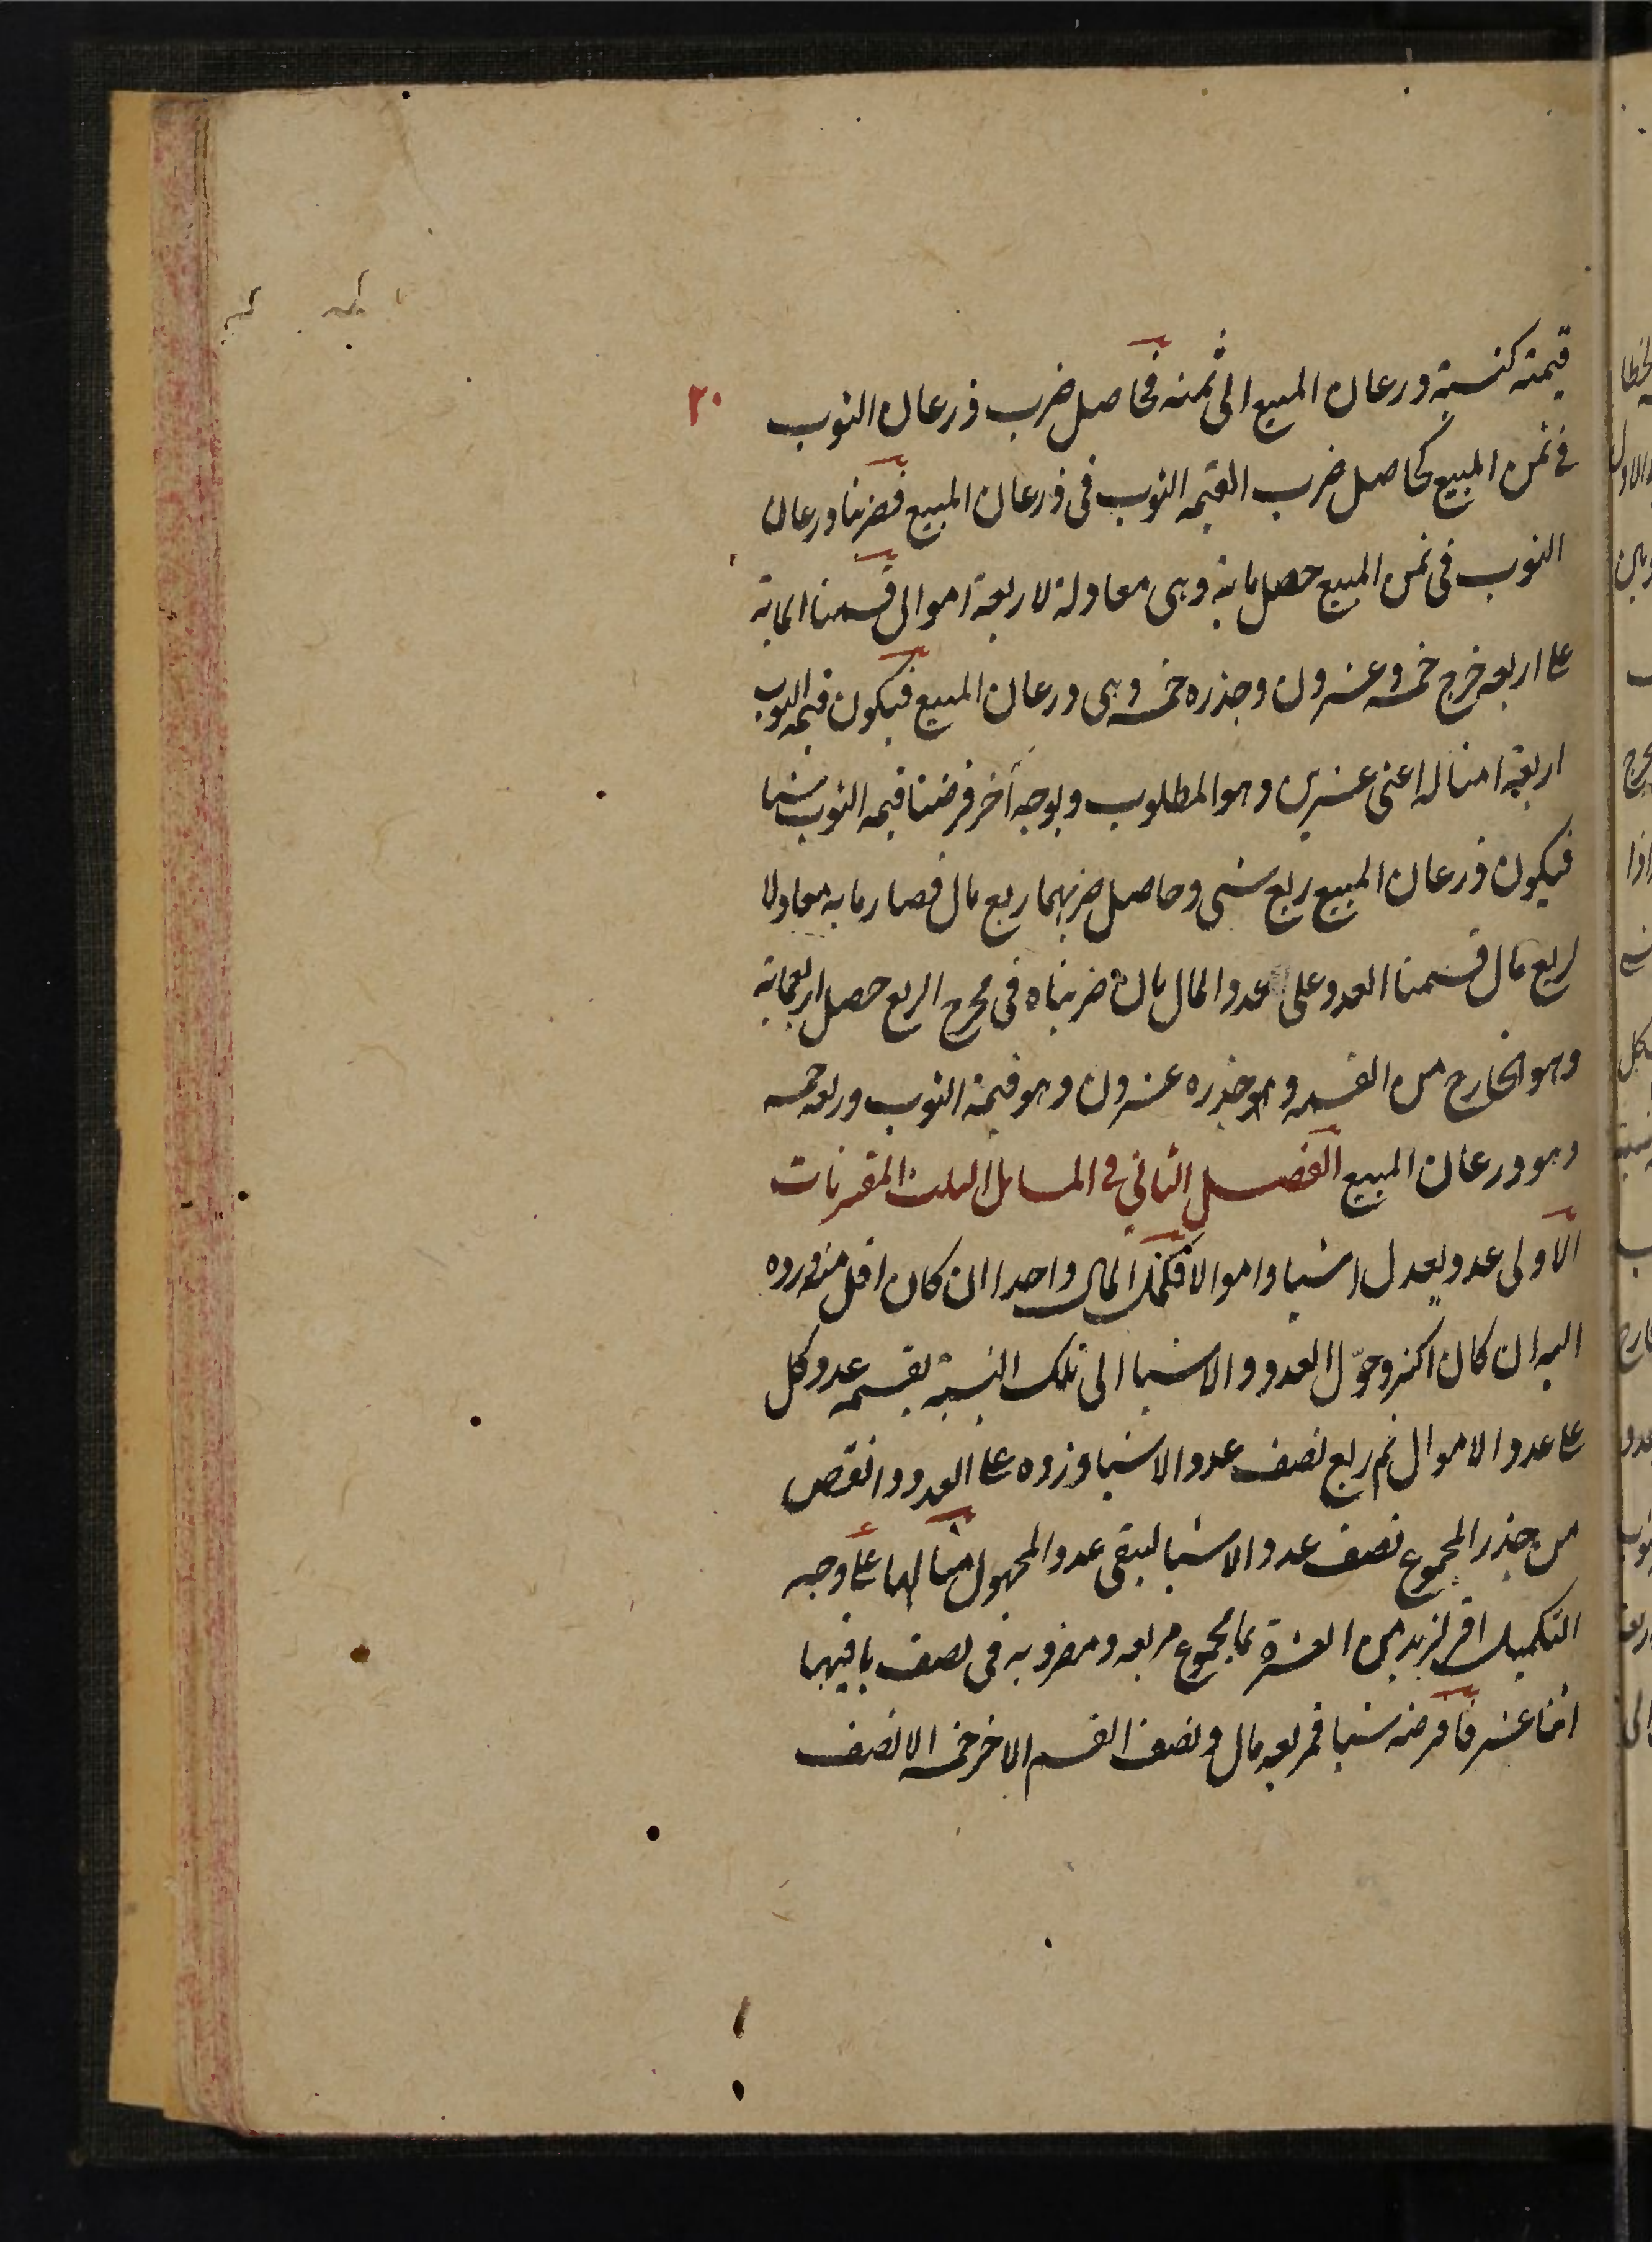 ٢٠
قيمته كنسبة ذرعان المبيع الى ثمنه فحاصل ضرب ذرعان الثوب
في ثمن المبيع كحاصل ضرب القيمه الثوب فى ذرعان المبيع فضربنا ذرعان
الثوب فى ثمن المبيع حصل مايه وهى معادلة لاربعة اموال قسمنا المايه
على اربعه خرج خمسه وعشرون وجذره خمسه وهى ذرعان المبيع فيكون قيمه الثوب
اربعة امثاله اعنى عشرين وهو المطلوب وبوجه آخر فرضنا قيمه الثوب شيا
فيكون ذرعان المبيع ربع شى وحاصل ضربهما ربع مال فصار مايه معادلا
لربع مال قسمنا العدد على عدد المال بان ضربناه فى مخرج الربع حصل اربعمايه
وهو الخارج من القسمه وهو جذره عشرون وهو قيمة الثوب وربعه خمسه
وهو ذرعان المبيع الفصل الثاني في المسايل الثلث المقترنات
الاولى عدد يعدل اشيا واموالا فكمل المال واحدا ان كان اقل منه ورده
اليه ان كان اكثر وحوّل العدد والاشيا الى تلك النسبة بقسمه عدد كل
على عدد الاموال ثم ربع نصف عدد الاشيا وزده على العدد وانقص
من جذر المجموع نصف عدد الاشيا ليبقى عدد المجهول مثالها على وجه
التكميل اقر لزيد من العشرة بما مجموع مربعه ومضروبه فى نصف باقيهما
اثنا عشر فافرضه شيا فمربعه مال ونصف القسم الاخر خمسه الا نصف